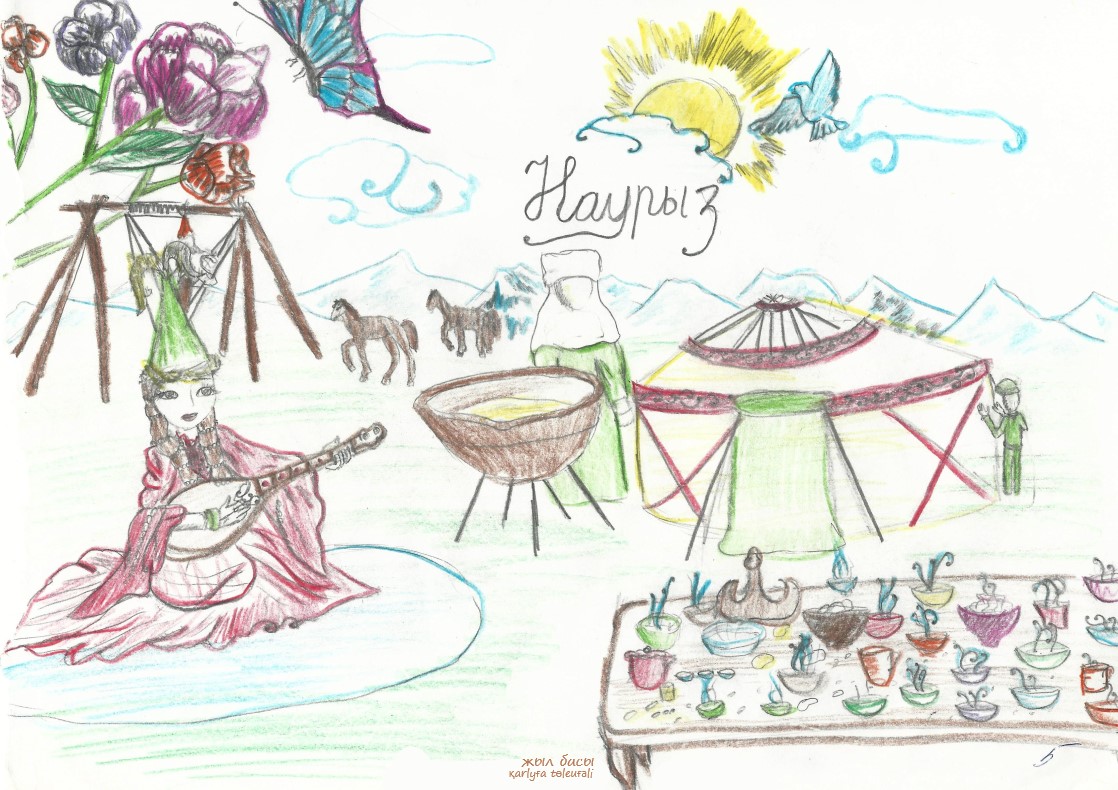 Наурыз
жыл басы
qarlyƣa tɵleuƣali
Б